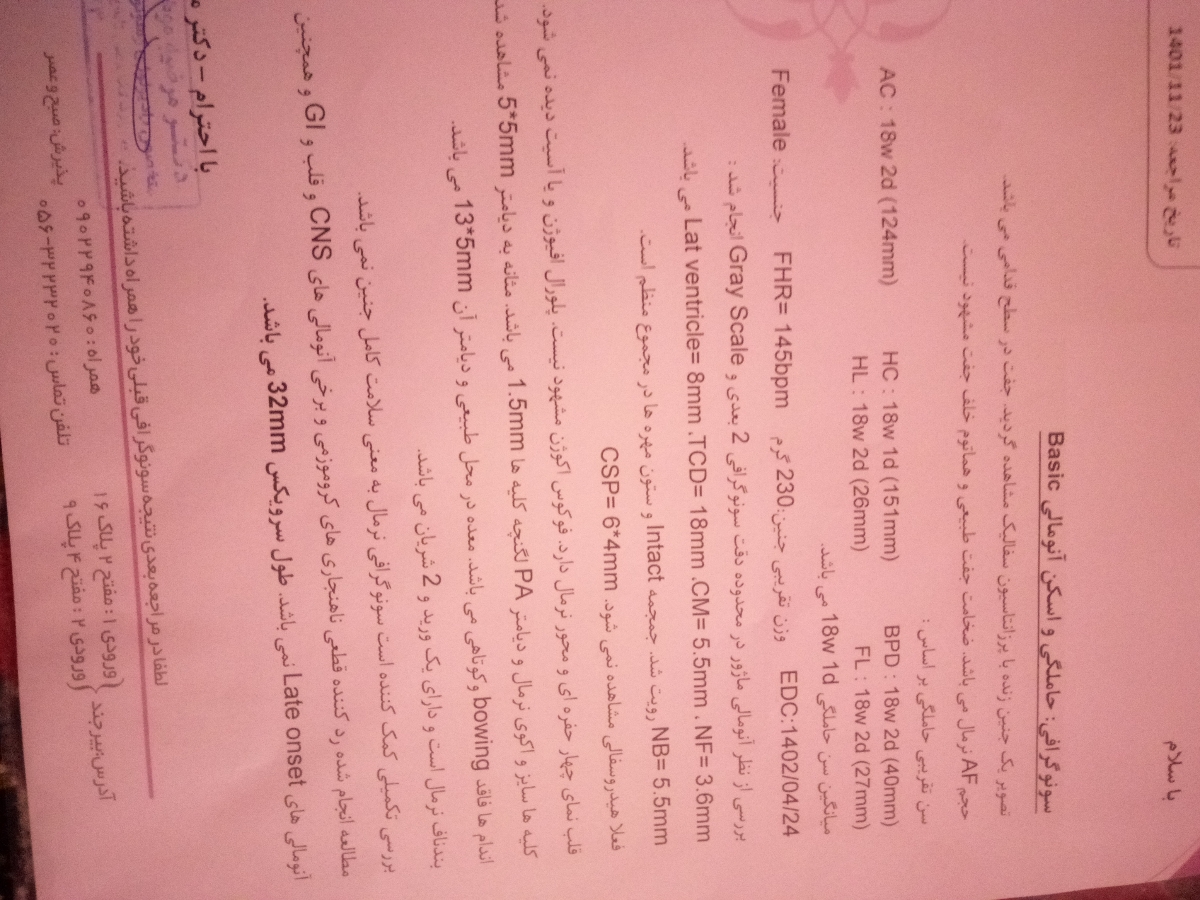 تاریخ مراجعه: 1401/11/23
با سلام
سونوگرافی: حاملگی و اسکن آنومالی Basic
تصویر یک جنین زنده با پرزانتاسیون سفالیک مشاهده گردید. جفت در سطح قدامی می باشد.
حجم AF نرمال می باشد. ضخامت جفت طبیعی و هماتوم خلف جفت مشهود نیست.
سن تقریبی حاملگی بر اساس :
BPD : 18w 2d (40mm) HC : 18w 1d (151mm) AC : 18w 2d (124mm)
FL : 18w 2d (27mm) HL : 18w 2d (26mm)
میانگین سن حاملگی 18w 1d می باشد.
EDC:1402/04/24 وزن تقریبی جنین:230 گرم FHR= 145bpm جنسیت: Female
بررسی از نظر آنومالی ماژور در محدوده دقت سونوگرافی 2 بعدی و Gray Scale انجام شد :
Lat ventricle= 8mm .TCD= 18mm .CM= 5.5mm . NF= 3.6mm می باشد.
NB= 5.5mm رویت شد. جمجمه Intact و ستون مهره ها در مجموع منظم است.
فعلا هیدروسفالی مشاهده نمی شود. CSP= 6*4mm
قلب نمای چهار حفره ای و محور نرمال دارد. فوکوس اکوژن مشهود نیست. پلورال افیوژن و یا آسیت دیده نمی شود.
کلیه ها سایز و اکوی نرمال و دیامتر PA لگنچه کلیه ها 1.5mm می باشد. مثانه به دیامتر 5*5mm مشاهده شد
اندام ها فاقد bowing و کوتاهی می باشد. معده در محل طبیعی و دیامتر آن 13*5mm می باشد.
بندناف نرمال است و دارای یک ورید و 2 شریان می باشد.
بررسی تکمیلی کمک کننده است سونوگرافی نرمال به معنی سلامت کامل جنین نمی باشد.
مطالعه انجام شده رد کننده قطعی ناهنجاری های کروموزمی و برخی آنومالی های CNS و قلب و GI و همچنین
آنومالی های Late onset نمی باشد. طول سرویکس 32mm می باشد.
با احترام – دکتر
لطفا در مراجعه بعدی نتیجه سونوگرافی قبلی خود را همراه داشته باشید.
آدرس:بیرجند
ورودی ۱: مفتح ۲ پلاک ۱۶
ورودی ۲: مفتح ۴ پلاک ۹
همراه: ۰۹۰۲۲۹۴۰۸۶۰
تلفن تماس: ۰۵۶-۳۲۲۳۲۰۲۰
پذیرش: صبح و عصر